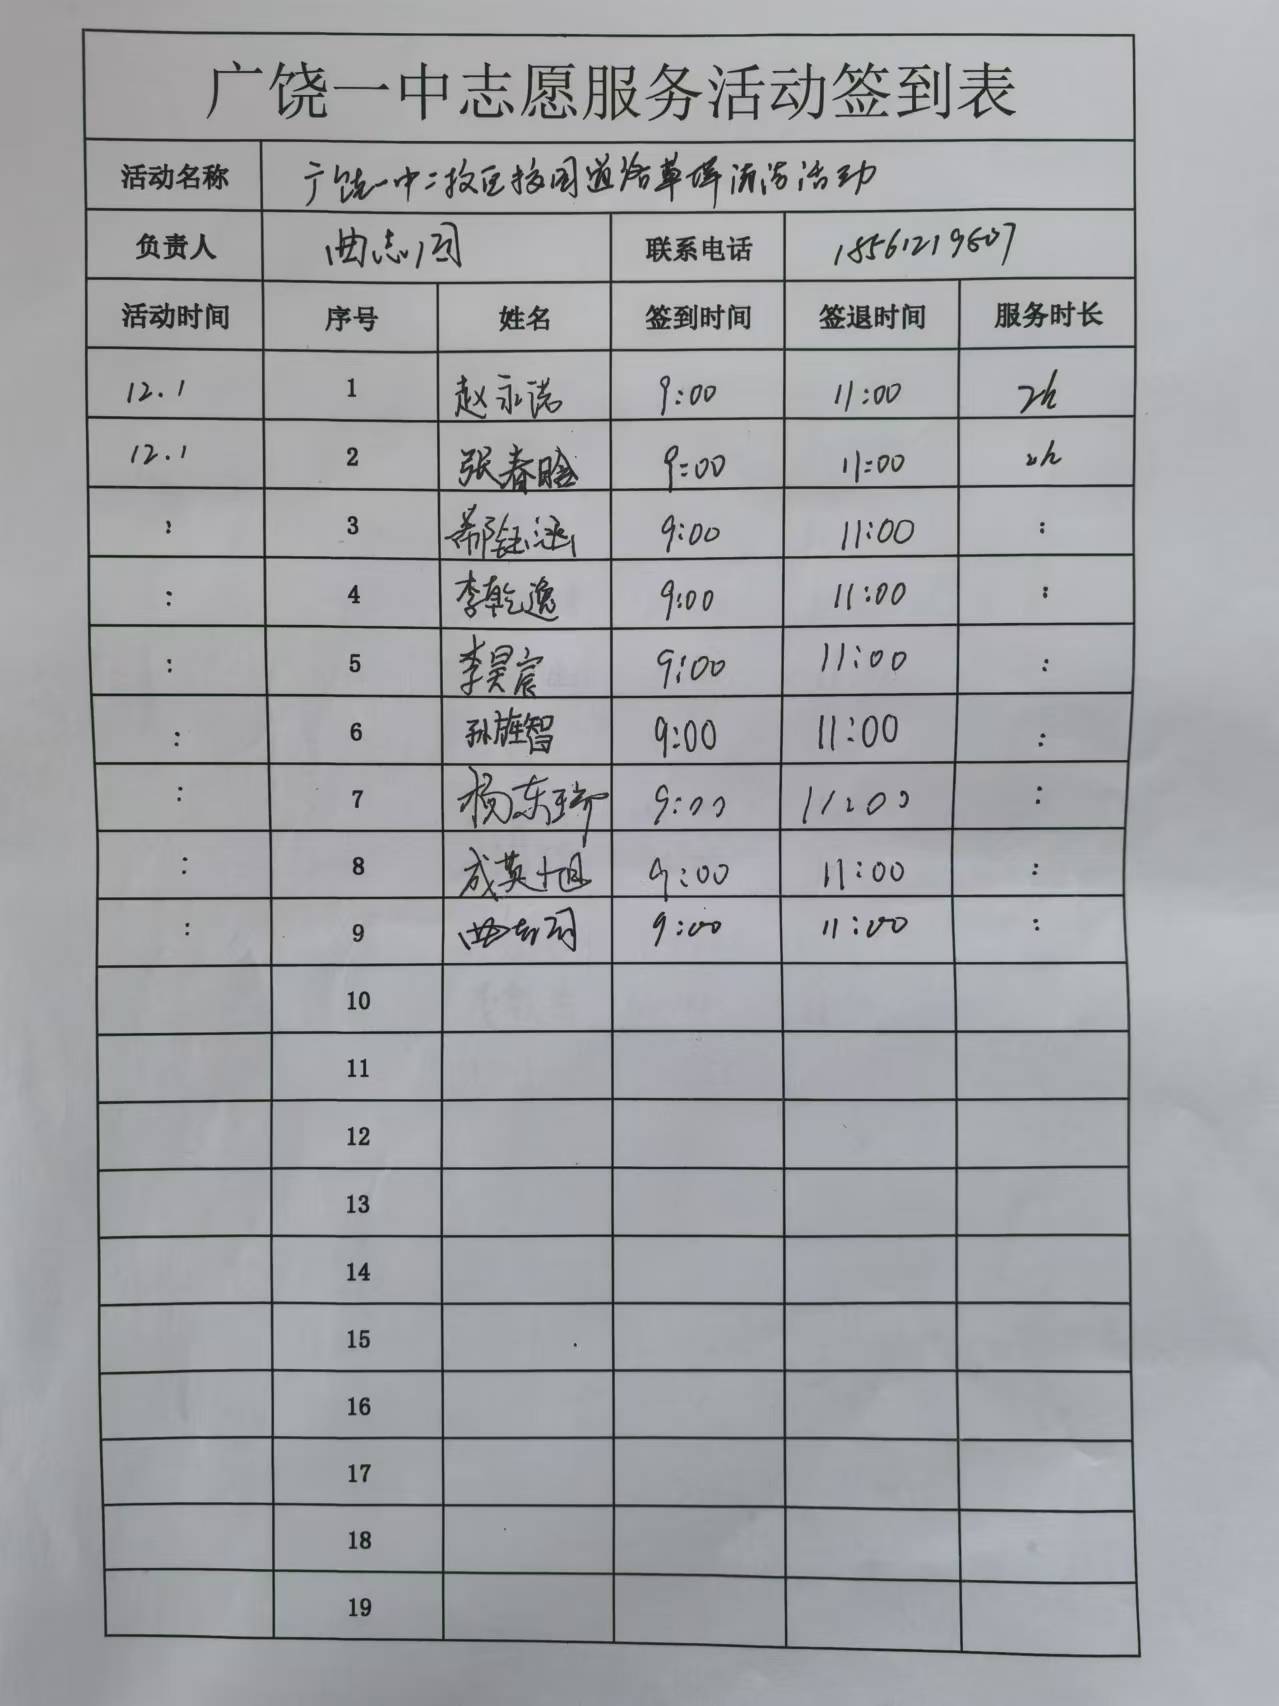 广饶一中志愿服务活动签到表
活动名称 广饶一中二校区校园道路草坪清洁活动
负责人 曲志同 联系电话
活动时间 序号 姓名 签到时间 签退时间 服务时长
12.1 1 赵永诺 9:00 11:00 2h
12.1 2 张春晗 9:00 11:00 2h
: 3 9:00 11:00 :
: 4 李乾逸 9:00 11:00 :
: 5 李昊宸 9:00 11:00 :
: 6 孙旌智 9:00 11:00 :
: 7 杨东瑞 9:00 11:00 :
: 8 成英旭 9:00 11:00 :
: 9 曲志同 9:00 11:00 :
10
11
12
13
14
15
16
17
18
19